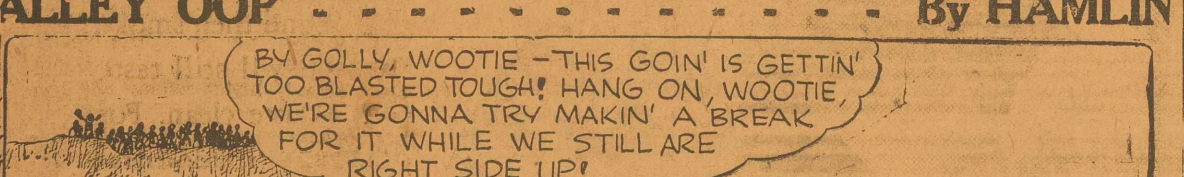 ALLEY OOP - - - - - - - - - - - - - By HAMLIN
BY GOLLY, WOOTIE - THIS GOIN' IS GETTIN'
TOO BLASTED TOUGH! HANG ON, WOOTIE,
WE'RE GONNA TRY MAKIN' A BREAK
FOR IT WHILE WE STILL ARE
RIGHT SIDE UP!